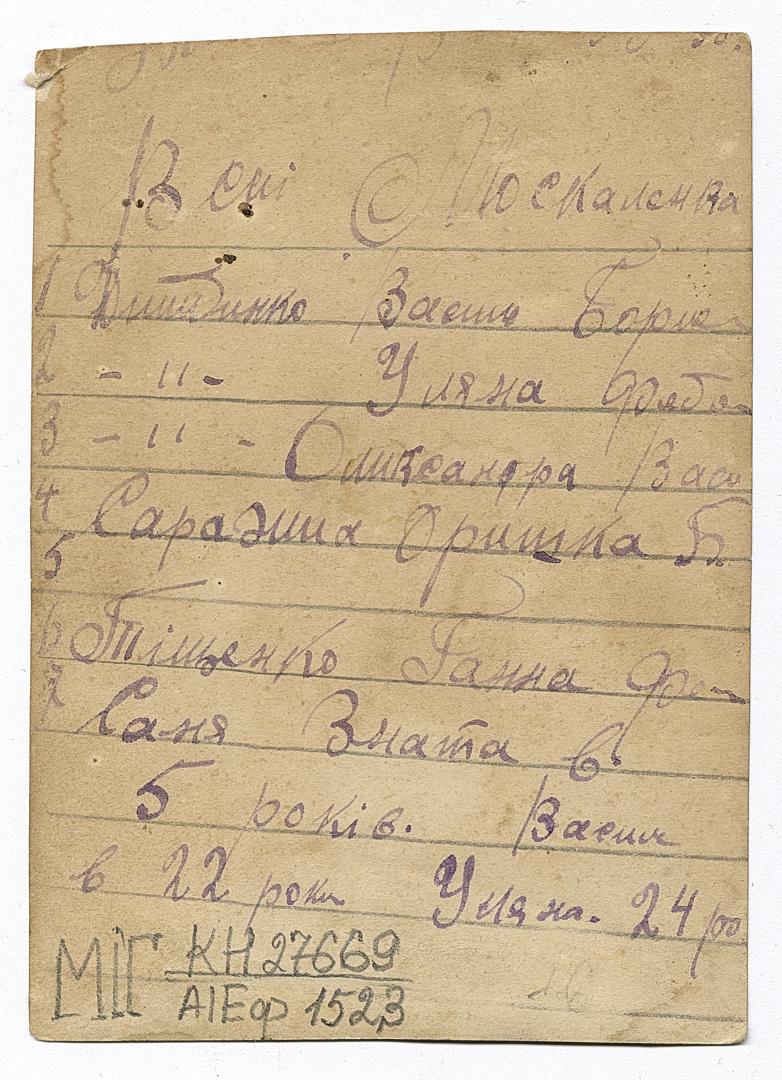 В сні С Москаленка
1 Васил Борис
2 - 11 - Уляна Федо
3 - 11 - Оликсандра Васи
4 Саражина Оришка Б
5
6 Тіщенко Ганна Фе
7 Саня Знята в
5 років. Васил
в 22 роки Уляна. 24 ро
МІГ КН 27669
АІЕф 1523